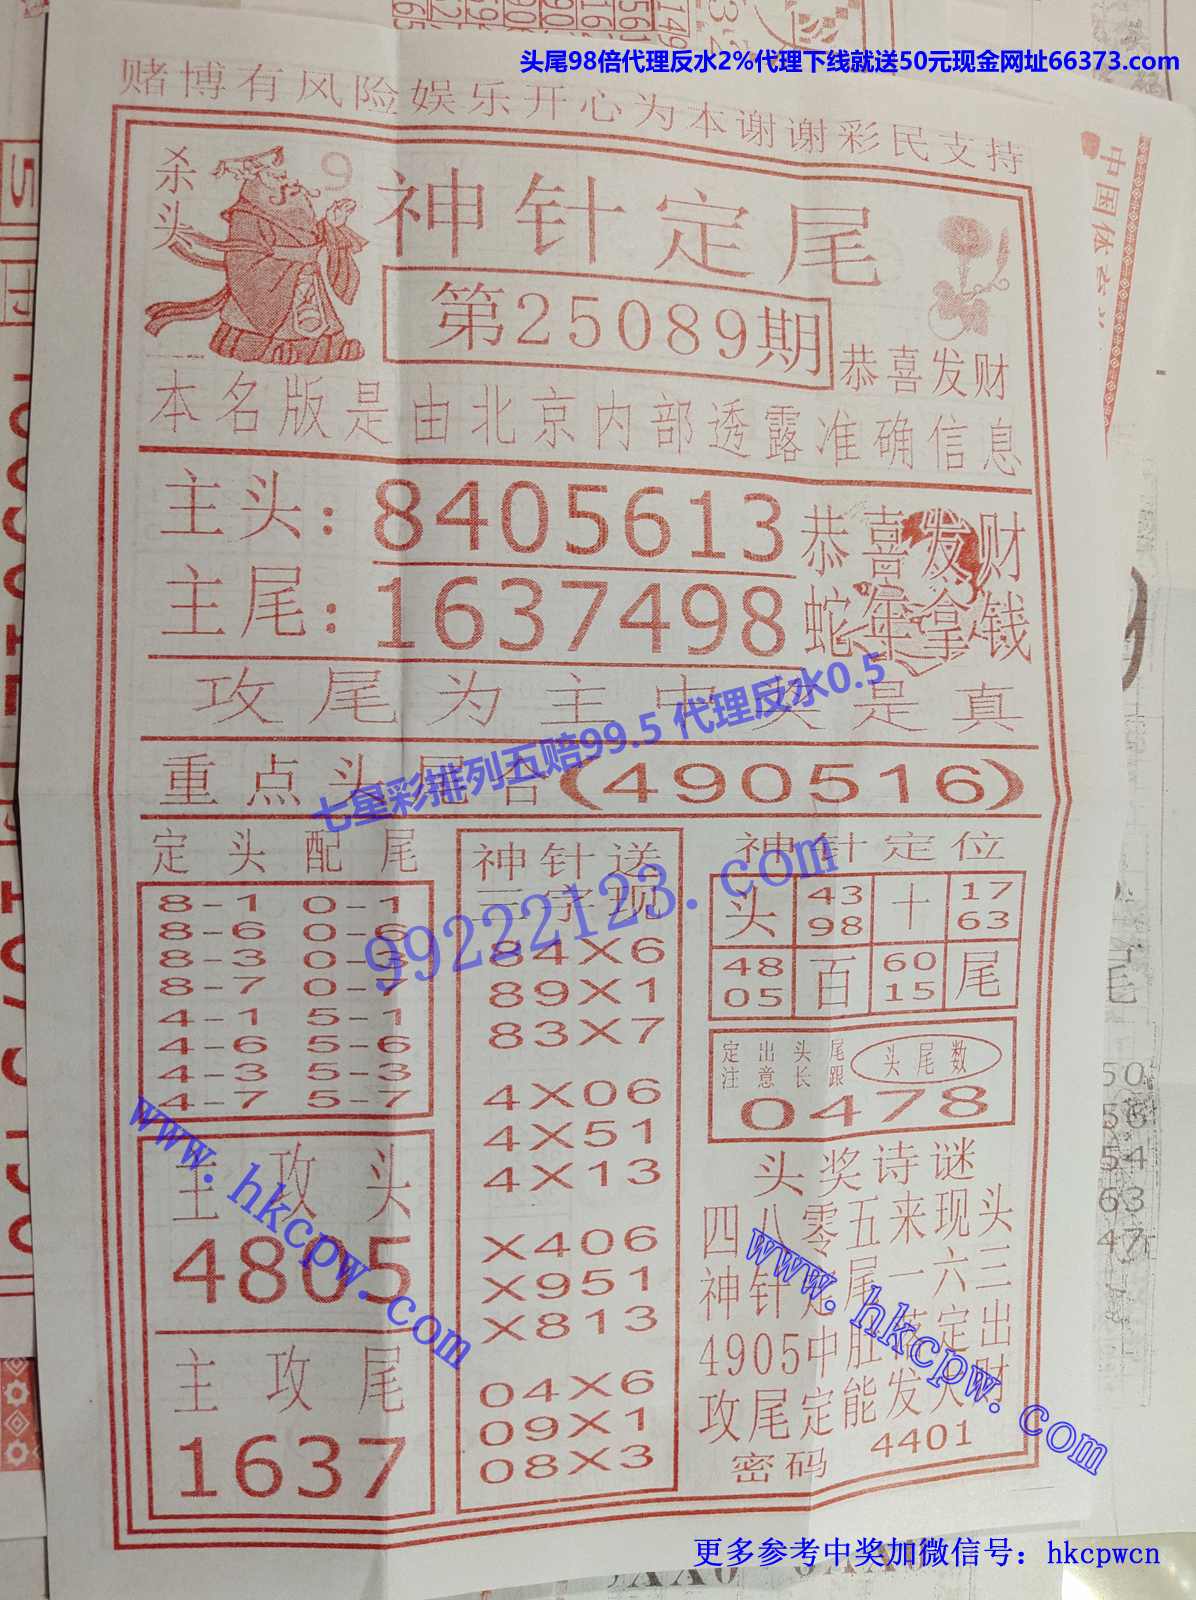 头尾98倍代理反水2%代理下线就送50元现金网址66373.com
赌博有风险娱乐开心为本谢谢彩民支持
杀头
9
神针定尾
第25089期
恭喜发财
本名版是由北京内部透露准确信息
主头：8405613
主尾：1637498
恭喜发财
蛇年拿钱
攻尾为主中奖是真
七星彩排列五赔99.5 代理反水0.5
重点头尾合(490516)
定头配尾
8-1 0-1
8-6 0-6
8-3 0-3
8-7 0-7
4-1 5-1
4-6 5-6
4-3 5-3
4-7 5-7
主攻头
4805
主攻尾
1637
神针送
三字现
84X6
89X1
83X7
4X06
4X51
4X13
X406
X951
X813
04X6
09X1
08X3
99222123.com
神针定位
头 43 98 十 17 63
48 05 百 60 15 尾
定出头尾
注意长跟
头尾数
0478
头奖诗谜
四八零五来现头
神针定尾一六三
4905中胆稳定出
攻尾定能发大财
密码 4401
www.hkcpw.com
www.hkcpw.com
更多参考中奖加微信号：hkcpwcn
中国体
50
56
54
63
47